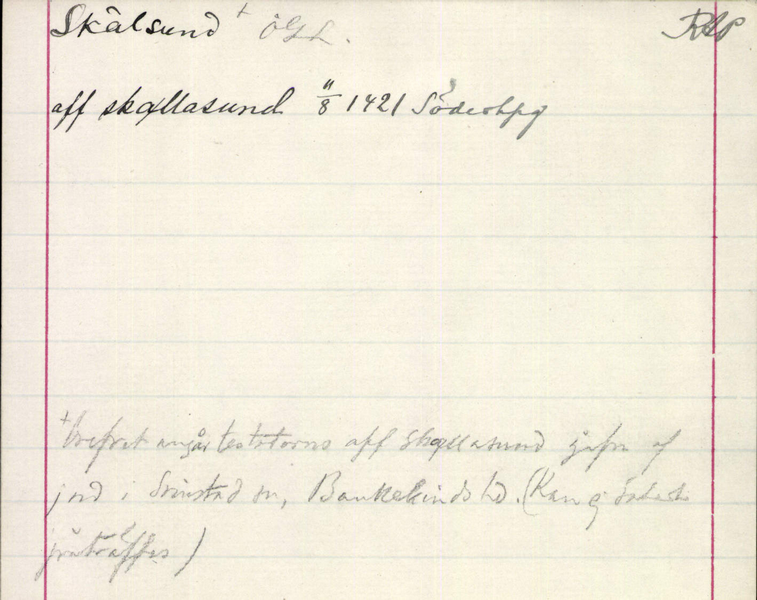 Skälsund + ÖGL. RAP
aff skællasund 11/8 1421 Söderkpg
+ brefvet angår testators aff skællasund gåfva af
jord i Svinstad sn, Bankekinds hd. (Kan ej
påträffas)